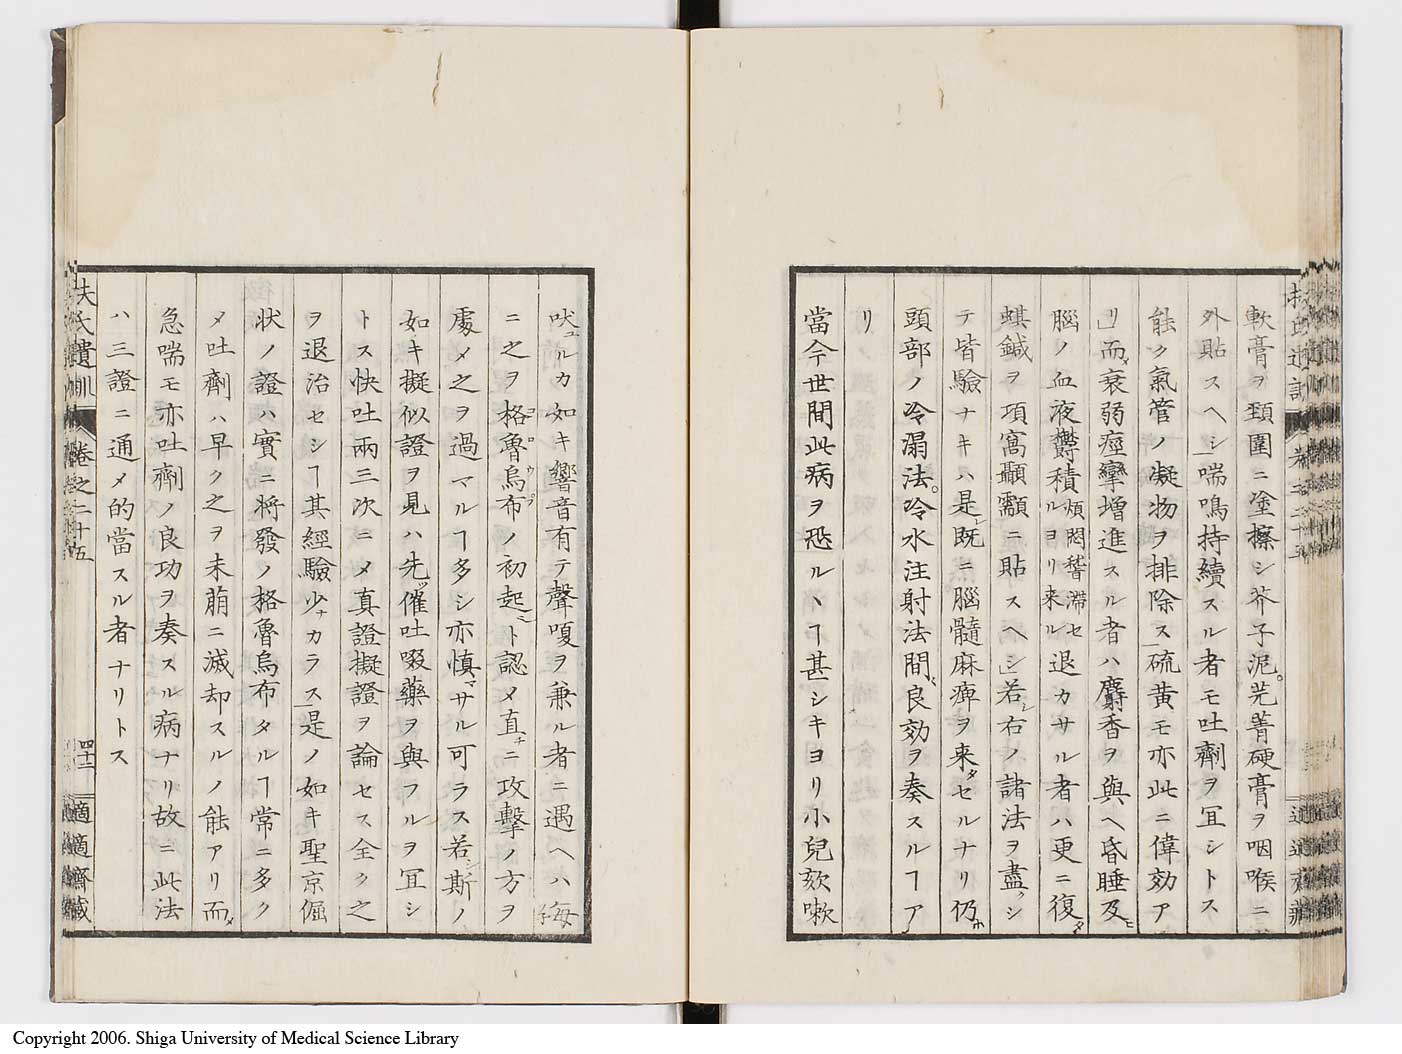 軟膏ヲ頸圍ニ塗擦シ芥子泥。芫菁硬膏ヲ咽喉ニ
外貼スヘシ」喘鳴持續スル者モ吐劑ヲ冝シトス
能ク氣管ノ凝物ヲ排除ス」硫黄モ亦此ニ偉効ア
リ」而メ衰弱痙攣增進スル者ハ麝香ヲ與ヘ昏睡及ヒ
腦ノ血液欝積煩悶稽滯セルヨリ来ル退カサル者ハ更ニ復タ
蜞鍼ヲ項窩顳顬ニ貼スヘシ」若シ右ノ諸法ヲ盡クシ
テ皆驗ナキハ是レ既ニ腦髓麻痺ヲ来タセルナリ仍ホ
頭部ノ冷溻法。冷水注射法間〻良効ヲ奏スルヿア
リ
當今世間此病ヲ恐ルヽヿ甚シキヨリ小兒欬嗽
吠ユルカ如キ響音有テ聲嗄ヲ兼ル者ニ遇ヘハ每
ニ之ヲ格魯烏布ノ初起ト認メ直チニ攻擊ノ方ヲ
處メ之ヲ過マルヿ多シ亦慎マサル可ラス若シ斯ノ
如キ擬似證ヲ見ハ先ツ催吐啜藥ヲ與フルヲ冝シ
トス快吐兩三次ニメ真證擬證ヲ論セス全ク之
ヲ退治セシヿ其經驗少ナカラス」是ノ如キ聖京倔
状ノ證ハ實ニ將發ノ格魯烏布タルヿ常ニ多ク
メ吐劑ハ早ク之ヲ未萠ニ滅却スルノ能アリ而メ
急喘モ亦吐劑ノ良功ヲ奏スル病ナリ故ニ此法
ハ三證ニ通メ的當スル者ナリトス
扶氏遺訓 卷之二十五 四十三 適適齋藏
Copyright 2006. Shiga University of Medical Science Library